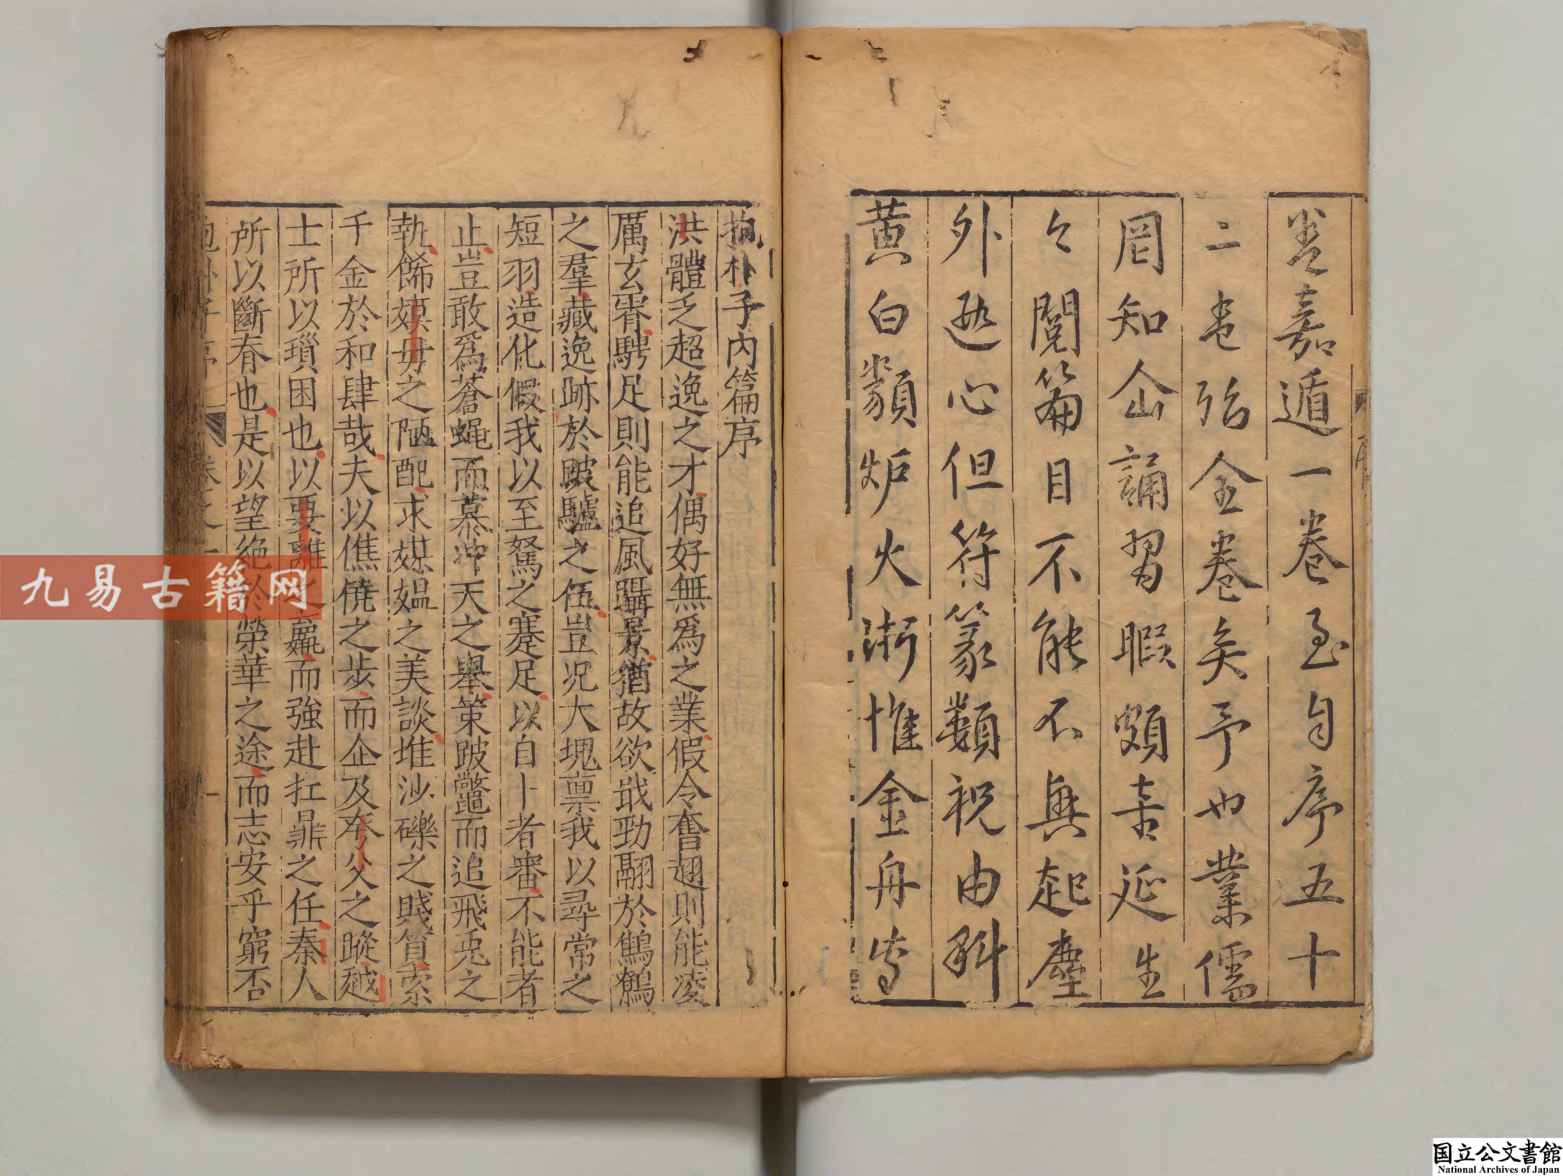 嘉遁一卷至自序五十
二卷殆全卷矣予也業儒
罔知仙誦習暇頗喜延生
々閱篇目不能不興起塵
外遐心但符篆類祝由科
黄白類炉火術惟金丹寄
抱朴子内篇序
洪體乏超逸之才偶好無爲之業假令奮翅則能凌
厲玄霄騁足則能追風躡景猶故欲戢勁翮於鷦鷃
之羣藏逸跡於跛驢之伍豈况大塊禀我以尋常之
短羽造化假我以至駑之蹇足以自卜者審不能者
止豈敢爲蒼蝇而慕冲天之舉策跛鼈而追飛兎之
軌飾嫫母之陋配求媒媪之美談堆沙礫之賤質索
千金於和肆哉夫以僬僥之步而企及夸父之蹤越
士所以瑣困也以要離之羸而強赴扛鼎之任秦人
所以斷春也是以望絶於榮華之途而志安乎窮否
抱朴子序 卷之一 一
九易古籍网
国立公文書館
National Archives of Japan